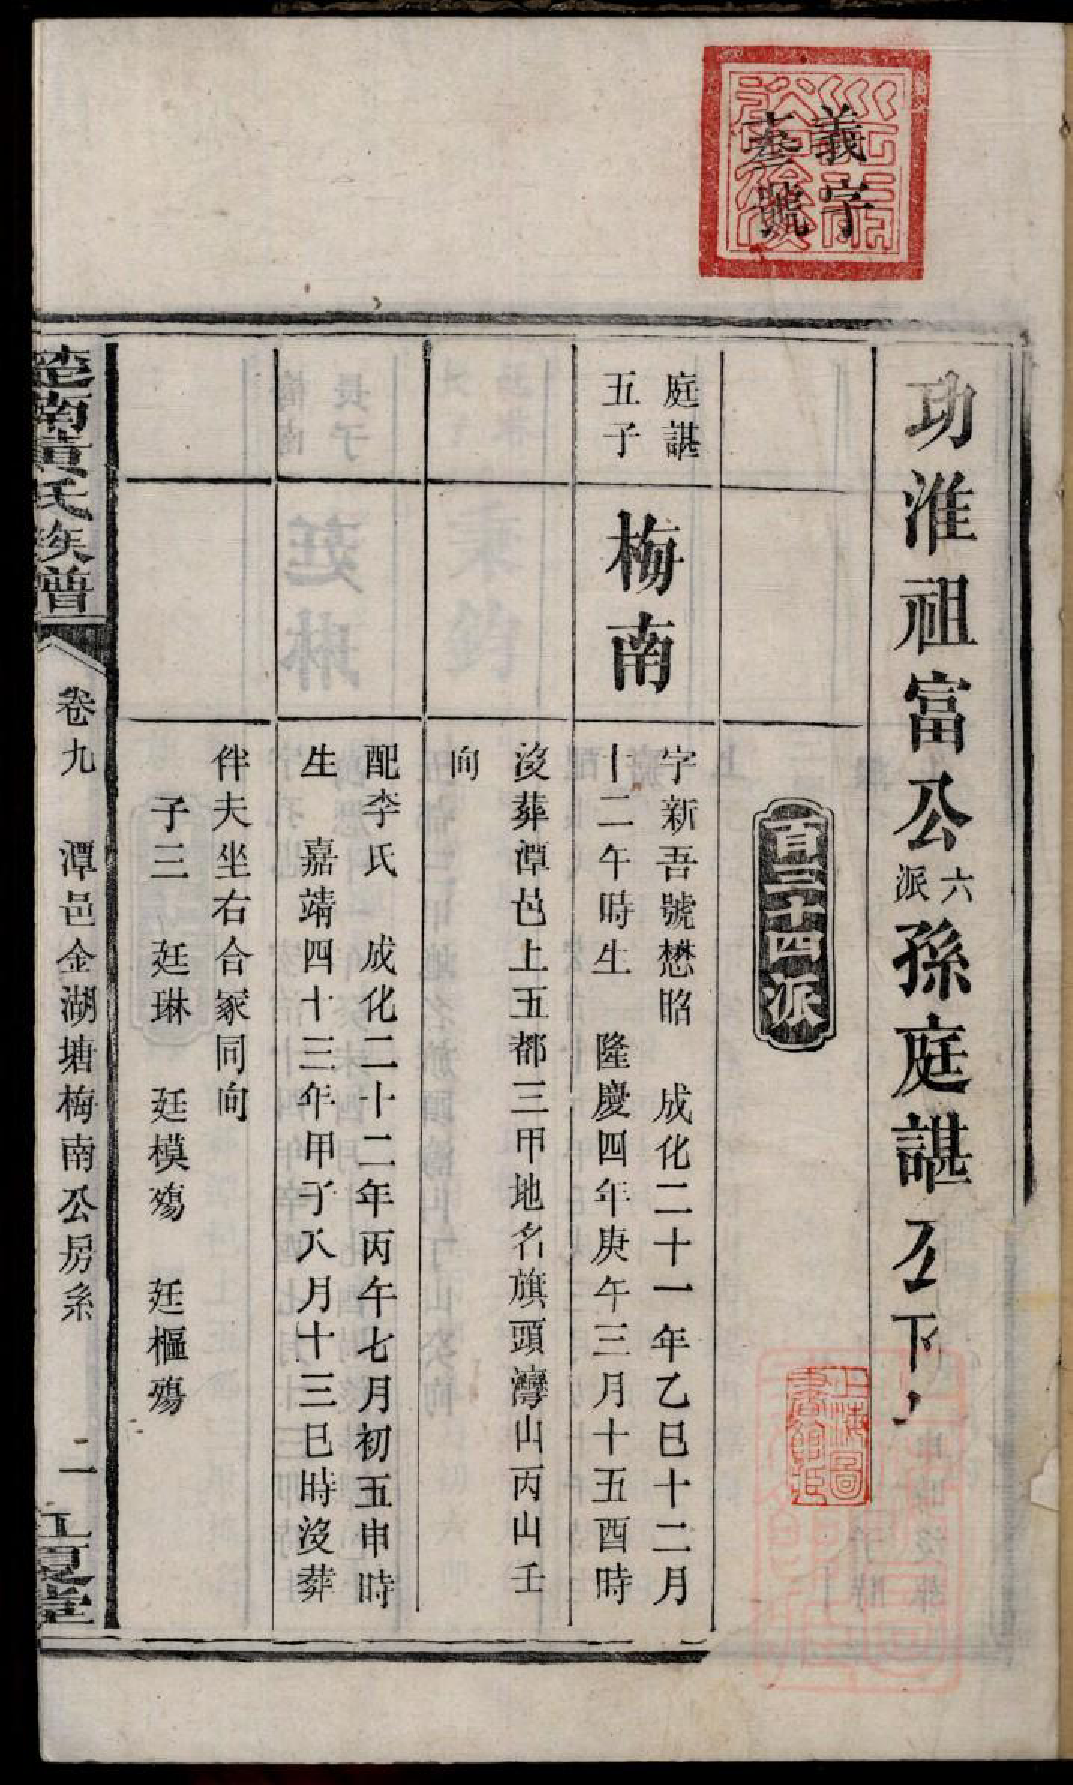 義字
壹號
功淮祖富公六派孫庭諶公下
百三十四派
庭諶
五子
梅南
字新吾號懋昭 成化二十一年乙巳十二月
十二午時生 隆慶四年庚午三月十五酉時
沒葬潭邑上五都三甲地名旗頭灣山丙山壬
向
配李氏 成化二十二年丙午七月初五申時
生 嘉靖四十三年甲子八月十三巳時沒葬
伴夫坐右合冢同向
子三 廷琳 廷模殤 廷樞殤
楚南黃氏族譜
卷九 潭邑金湖塘梅南公房系 二
江夏堂
上海圖書館藏